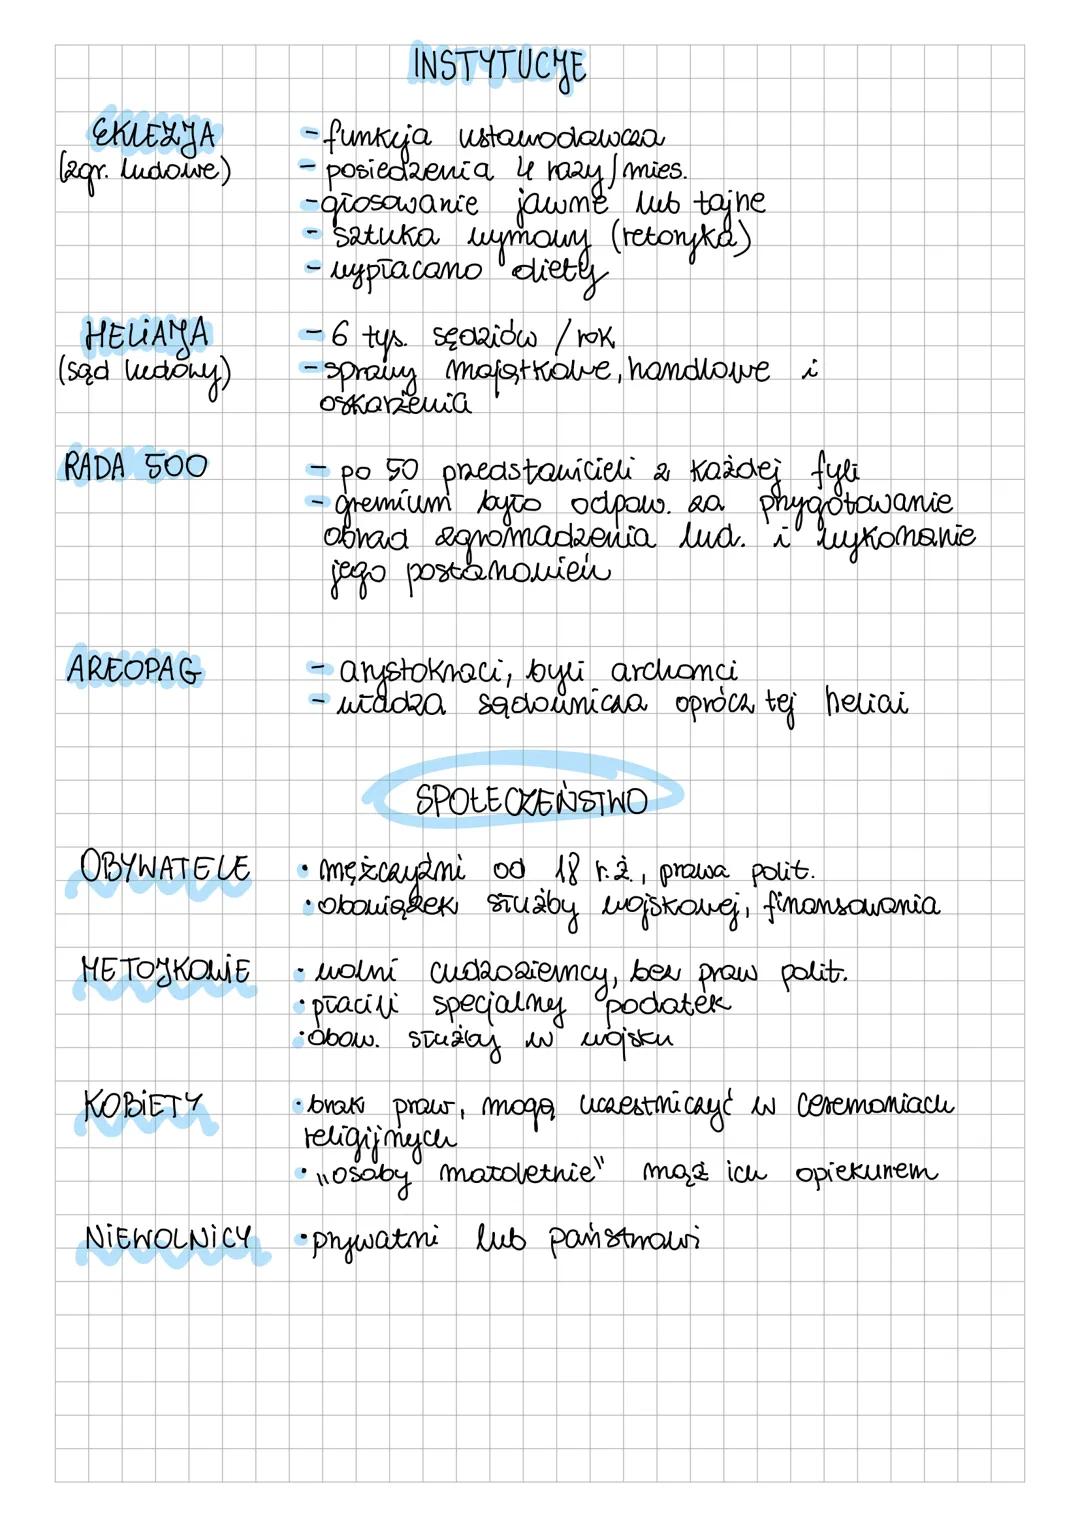 INSTYTUCJE
EKLEZJA
(zgr. ludowe)
- funkcja ustawodawcza
- posiedzenia 4 razy/mies.
- głosowanie jawne lub tajne
- sztuka wymowy (retoryka)
- wypłacano diety
HELIAJA
(sąd ludowy)
- 6 tys. sędziów / rok
- sprawy majątkowe, handlowe i
oskarżenia
RADA 500
- po 50 przedstawicieli z każdej fyli
- gremium było odpow. za przygotowanie
obrad zgromadzenia lud. i wykonanie
jego postanowień
AREOPAG
- arystokraci, byli archonci
- władza sądownicza oprócz tej heliai
SPOŁECZEŃSTWO
OBYWATELE
• mężczyźni od 18 r.ż., prawa polit.
• obowiązek służby wojskowej, finansowania
METOJKOWIE
• wolni cudzoziemcy, bez praw polit.
• płacili specjalny podatek
• obow. służby w wojsku
KOBIETY
• brak praw, mogą uczestniczyć w ceremoniach
religijnych
• "osoby małoletnie" mąż ich opiekunem
NIEWOLNICY
• prywatni lub państwowi